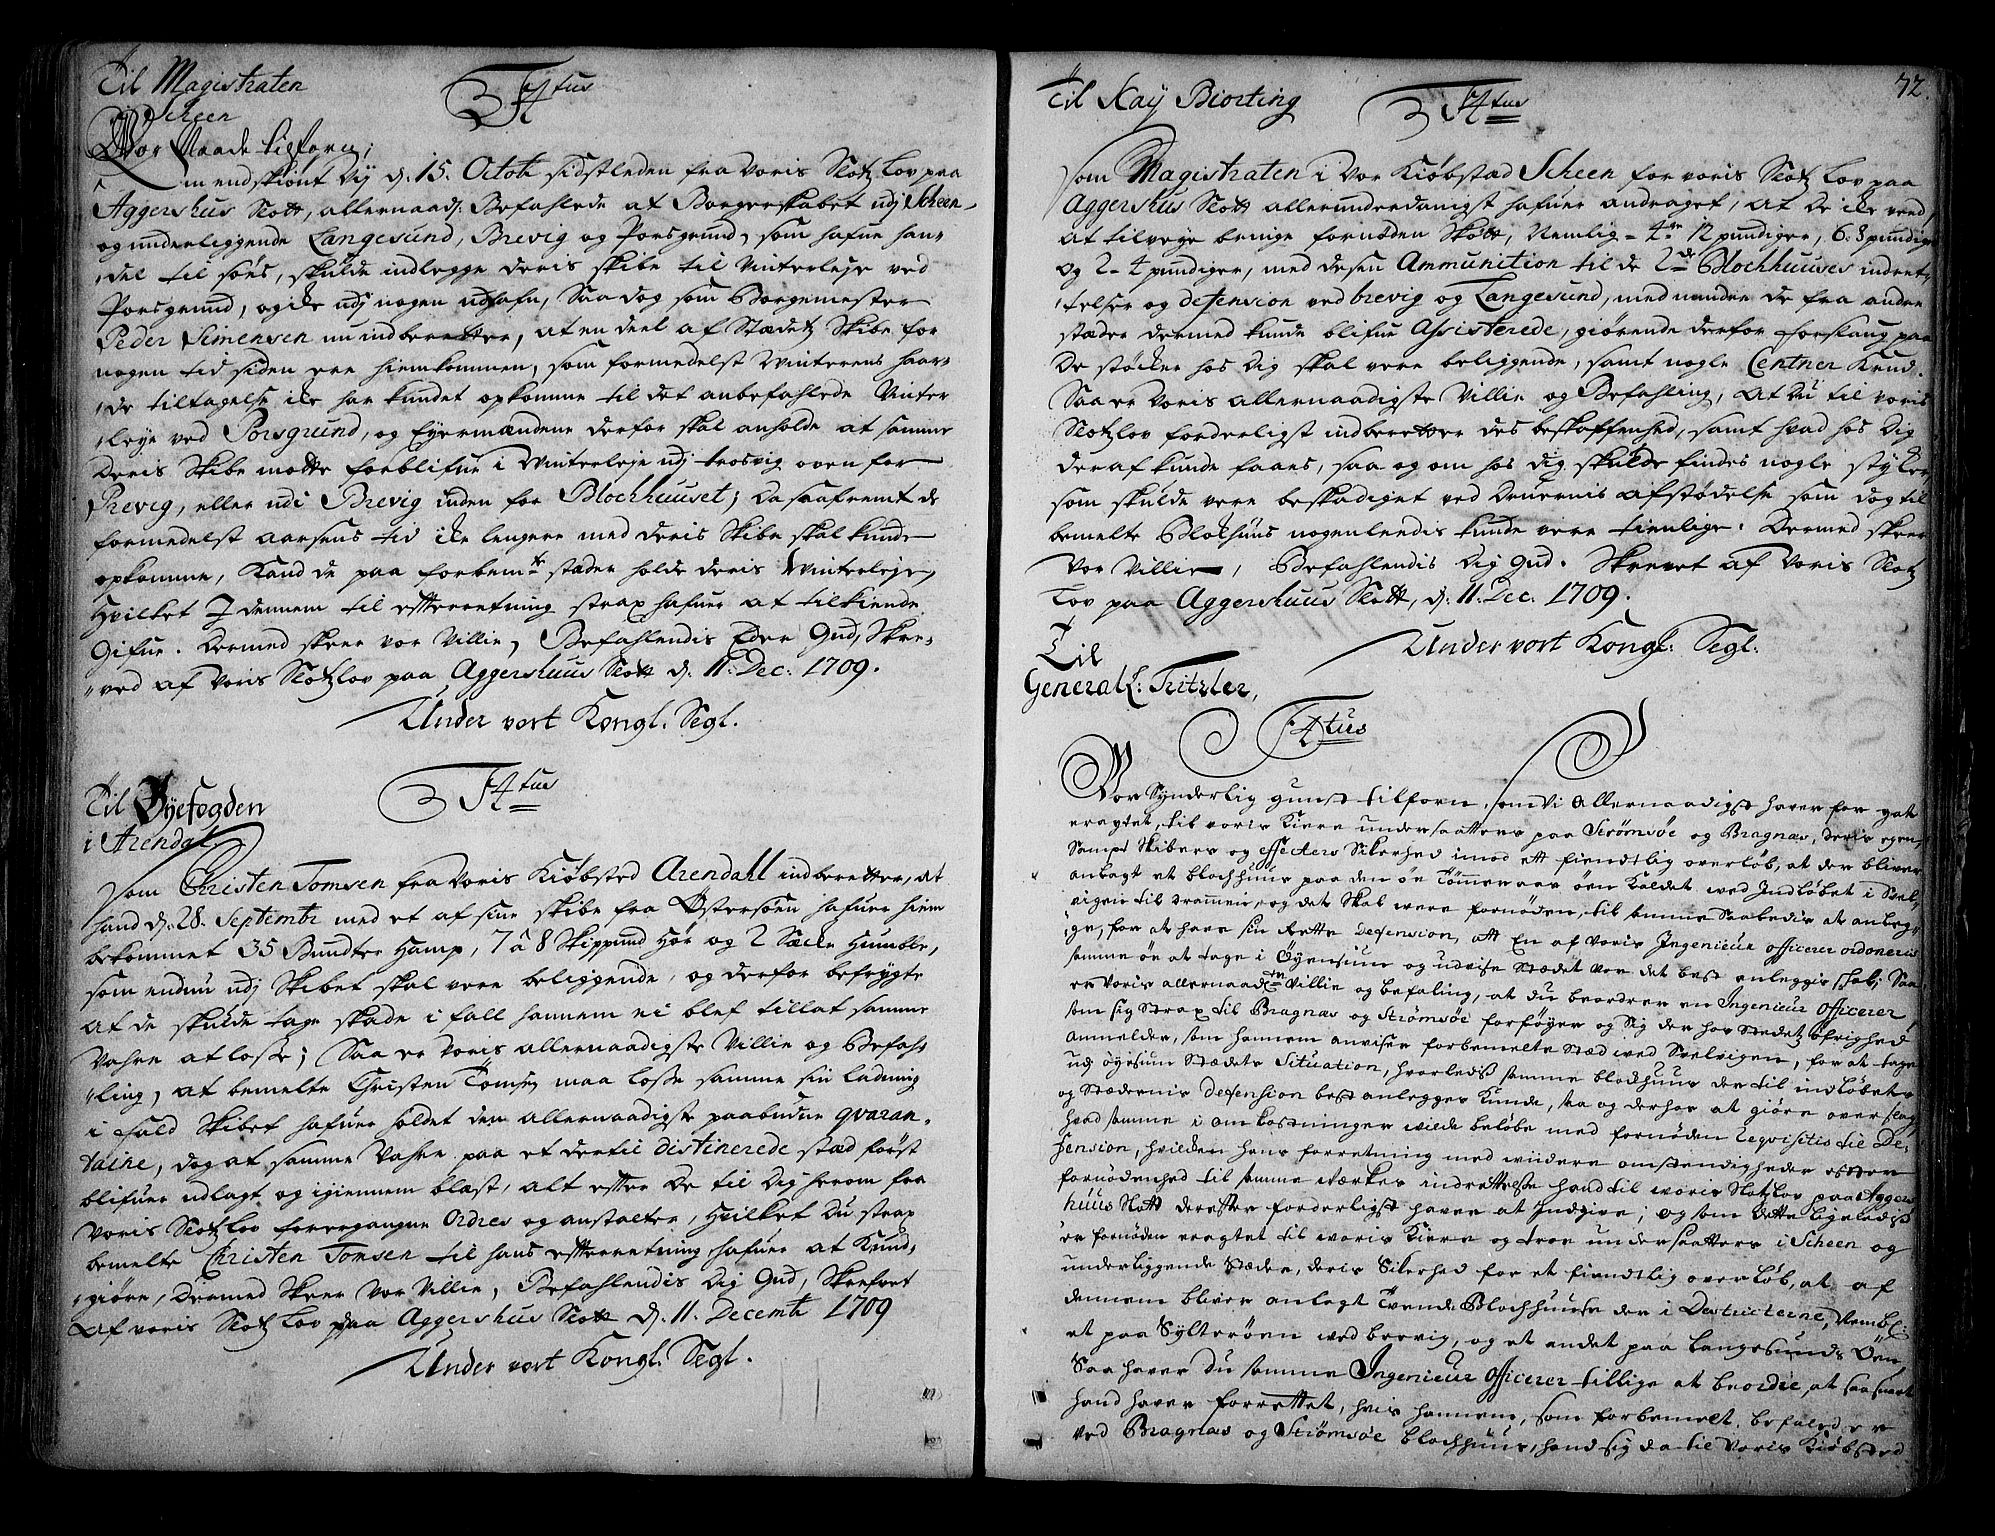 Til Magistraten
i Scheen
F 4tus
Vor Naade tilforn;
Om endskiønt Vij d: 15. Octob: sidstleden fra Voris Slotz Lov paa
Aggershus Slott, allernaad: Befahlede at Borgerskabet udj Scheen
og underliggende Langesund, Brevig og Porsgrund, som hafue han-
del til søes, skulde indlegge deris skibe til Vinterleje ved
Porsgrund, og icke udj nogen udhafn, Saa dog som Borgemester
Peder Simensen nu indberetter, at en deel af Stædetz Skibe for
nogen tid siden ere hiemkommen, som formedelst Vinterens haar-
de tiltagelse icke har kundet opkomme til det anbefahlede Vinter
leye ved Porsgrund, og Eyermændene derfor skal anholde at samme
deris Skibe motte forblifue i Vinterleje udj trosvig oven for
Brevig, eller udi Brevig inden for Blochhuuset; Da saafremt de
formedelst aarsens tid icke lengere med deris Skibe skal kunde
opkomme, kand de paa forbemte stæder holde deris Vinterleje,
Hvilket I dennem til efterretning strax hafuer at tilkiende
Gifue. Dermed skeer vor Villie, Befahlendis Eder Gud, Skre-
ved af Voris Slotzlov paa Aggershuus Slott d: 11. Dec: 1709.
Under vort Kongl. Segl.
Til Byefogden
i Arendal
F 4tus
Som Christen Tomsen fra Voris Kiøbsted Arendahl indberetter, at
hand d: 28. Septembr med et af sine skibe fra Østersøen hafuer hiem
bekommet 35 Bundter Hamp, 7 â 8 Skippund Hør og 2 Sæcke Humble,
som endnu udj Skibet skal vere beliggende, og derfor befrygte
at de skulde tage skade i fall hannem ei blef tillat samme
Vahre at losse; Saa er Voris allernaadigste Villie og Befah-
ling, at bemelte Christen Tomsen maa losse samme sin ladning
i fald Skibet hafuer holdet den allernaadigste paabudne qvaran-
taine, dog at samme Vahre paa et dertil distinerede stæd først
blifuer udlagt og igiennem blæst, alt efter de til Dig herom fra
Voris Slotz Lov forergangne Ordres og anstalter, Hvilket Du strax
bemelte Christen Tomsen til hans efterretning hafuer at kund-
giøre, Dermed Skeer Vor Villie, Befahlendis Dig Gud, Skrefvet
af Voris Slotz Lov paa Aggershus Slott d: 11. Decembr 1709
Under vort Kongl. Segl.
72.
Til Kay Biorting
F 4tus
Som Magistraten i Vor Kiøbstad Scheen for voris Slotz Lov paa
Aggershus Slott allerunderdanigst hafuer andraget, at de icke veed
at tilveye bringe fornøden Skøtz, Nemlig 4re 12 pundiger, 6: 8 pundiger
og 2- 4 pundiger, med desen Ammunition til de 2de Blochhuuses indret-
telser og defension ved brevig og Langesund, med minder de fra andre
stæder dermed kunde blifue Assisterede, giørende derfor forslaug paa
De støcker hos Dig skal vere beliggende, samt nogle Centner Krud.
Saa er Voris allernaadigste Villie og Befahling, at Du til voris
Slotzlov forderligst indberetter des beskaffenhed, samt hvad hos Dig
deraf kunde faaes, saa og om hos dig skulde findes nogle styker
som skulde vere beskadiget ved Druernis afstødelse som dog til
bemelte Blokhuus nogenlendis kunde vere tienlige. Dermed skeer
Vor Villie, Befahlendis Dig Gud. Skrevet af Voris Slotz
Lov paa Aggershuus Slott, d: 11. Dec. 1709.
Under vort Kongl: Segl.
Til
General L: Tritzler,
F 4tus
Vor Synderlig gunst tilforn, som Vi Allernaadigst haver for gat
eragtet, til voris kiere undersaatters paa Strømsøe og Bragnæs, deris egen
Sampt Skibers og effecters Sikerhed imod ett fiendtlig overløb, at der bliver
anlagt et blochhuus paa den øe Tømmeraas øen kaldet ved Indløbet i Svel-
vigen til Drammen, og det Skal were fornøden, til samme Saaledis at anleg-
ge, for at have sin Rette defension, att En af Voris Ingenieur officerer ordoneris
samme øe at tage i Øyensiun og udvise Stædet vor det best anleggis skal; Saa
er Voris allernaadigste Villie og befaling, at du beordrer en Ingenieur officerer
som sig Strax til Bragnæs og Strømsøe forføyer og Sig der hos Stedetz øfrighed
anmelder, som hannem anviser forbemelte Stæd wed Svelvigen, for at tage
udj øyesiun Stædets Situation, hvorledis samme blockhuus der til indløbets
og Stædernis defension best anlegges kunde, saa og derhos at giøre overslag
hvad samme i omkostninger wilde beløbe med fornøden Reqvisitis til De-
fension, hvilcken hans forretning med widere omstendigheder efter
fornødenhed til samme værkes indrettelse hand til woris Slotzlov paa Aggers
huus Slott derefter forderligst haver at Indgive; og som dette ligeledis
er fornøden eragtet til woris Kiere og troe undersaatters i Scheen og
underliggende Stæder, deris Sikerhed for et fiendtlig overløb, at af
dennem bliver anlagt Tvende Blochhuuse der i Destricterne, Nembl:
et paa Sylterøen wed brevig, og et andet paa Langesunds Øen,
Saa haver Du samme Ingenieur officerer tillige at beordre, at saa snart
hand haver forrettet, hvis hannem, som forbemelt, befaled er
ved Bragnæs og Strømsøe blochhuus, hand sig da til Voris Kiøbsted